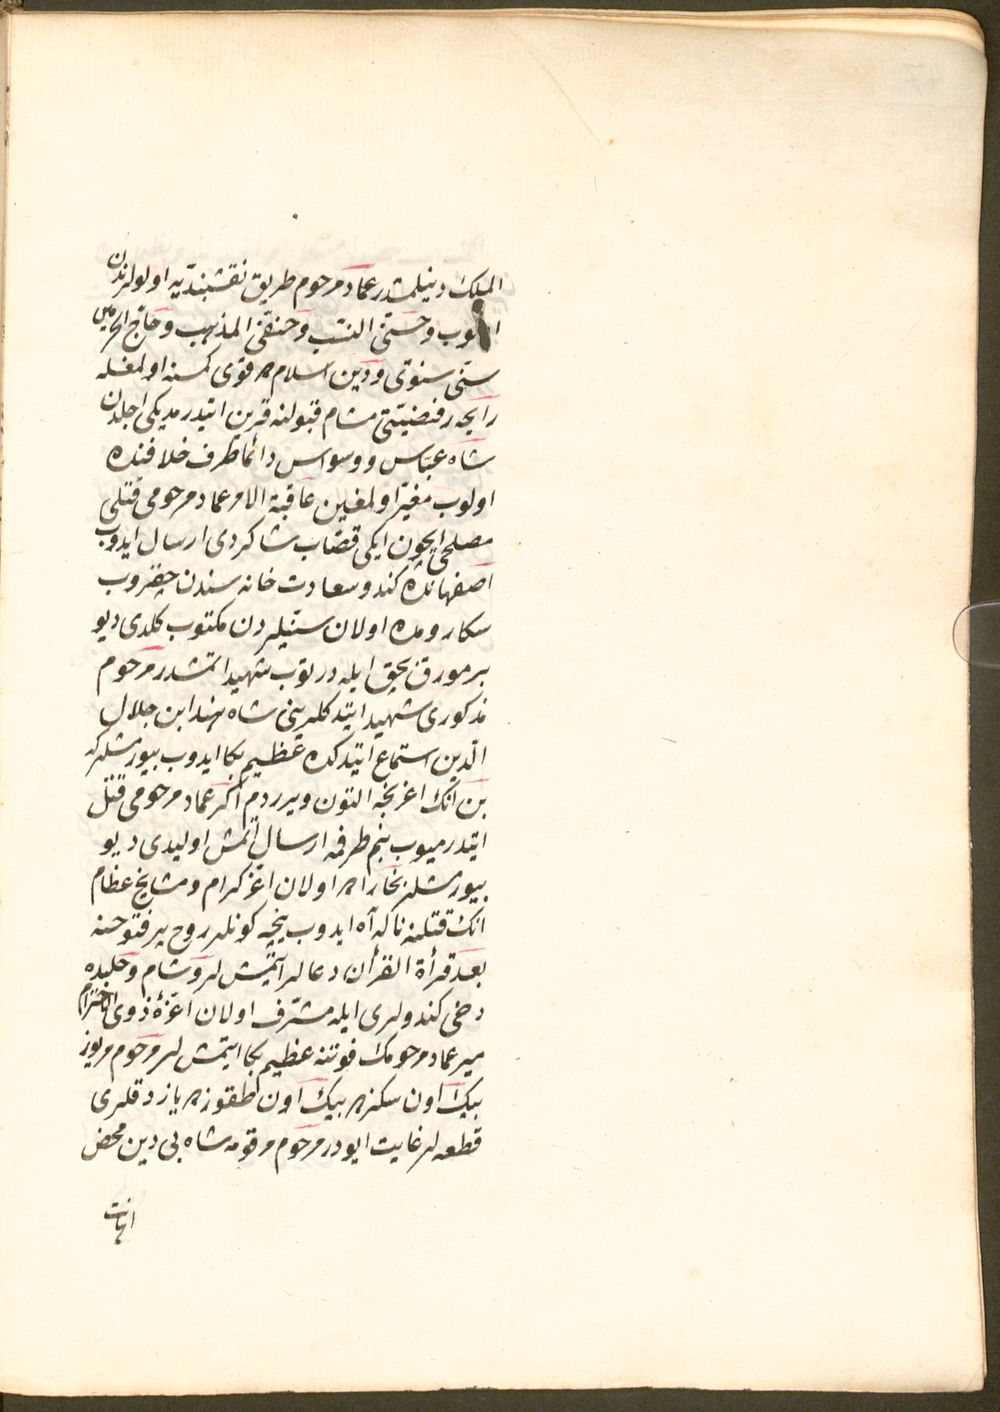 الملك دنيلمشدر عماد مرحوم طريق نقشبنديه اولولرندن
اولوب وحسنى النسب وحنفى المذهب وحاج الحرمين
سنى سنوتى ودين اسلامه قوى كمسنه اولمغله
رايحه رفضيتى مشام قبولنه قرين ايتدرمديكى اجلدن
شاه عباس ووسواس دائما طرف خلافنده
اولوب مغبر اولمغين عاقبة الامر عماد مرحومى قتلى
مصلحى ايچون ايكى قصاب شاكردى ارسال ايدوب
اصفهانده كندو سعادت خانه سندن چقروب
سكا رومده اولان سنيلردن مكتوب كلدى ديو
بر مورق بچق ايله درتوب شهيد اتمشدر مرحوم
مذكورى شهيد ايتدكلرينى شاه هند ابن جلال
الدين استماع ايتدكده عظيم بكا ايدوب بيورمشلركه
بن انك اغرنجه التون ويرردم اكر عماد مرحومى قتل
ايتدرميوب بنم طرفمه ارسال اتمش اوليدى ديو
بيورمشلر بخاراده اولان اعز كرام ومشايخ عظام
انك قتلنه ناله آه ايدوب نيچه كونلر روح پرفتوحنه
بعد قرأة القرأن دعالر ايتمشلر وشام وحلبده
دخى كندولرى ايله مشرف اولان اعزهٔ ذوى الاحترام
مير عماد مرحومك فوتنه عظيم بكا ايتمشلر مرحوم مربوز
بيك اون سكزده بيك اون طقوزده يازدقلرى
قطعه لر غايت ايودر مرحوم مرقومه شاه بى دين محض
اهانت